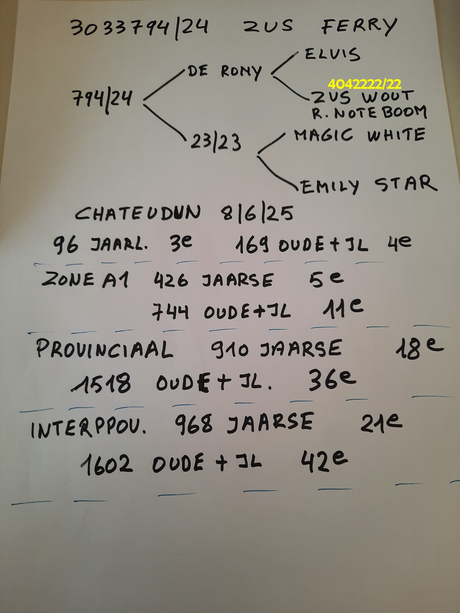 3033794/24 ZUS FERRY
ELVIS
DE RONY
4042222/22
794/24
ZUS WOUT
R. NOTEBOOM
23/23
MAGIC WHITE
EMILY STAR
CHATEUDUN 8/6/25
96 JAARL. 3e 169 OUDE+JL 4e
ZONE A1 426 JAARSE 5e
744 OUDE+JL 11e
PROVINCIAAL 910 JAARSE 18e
1518 OUDE + JL. 36e
INTERPPOV. 968 JAARSE 21e
1602 OUDE + JL 42e